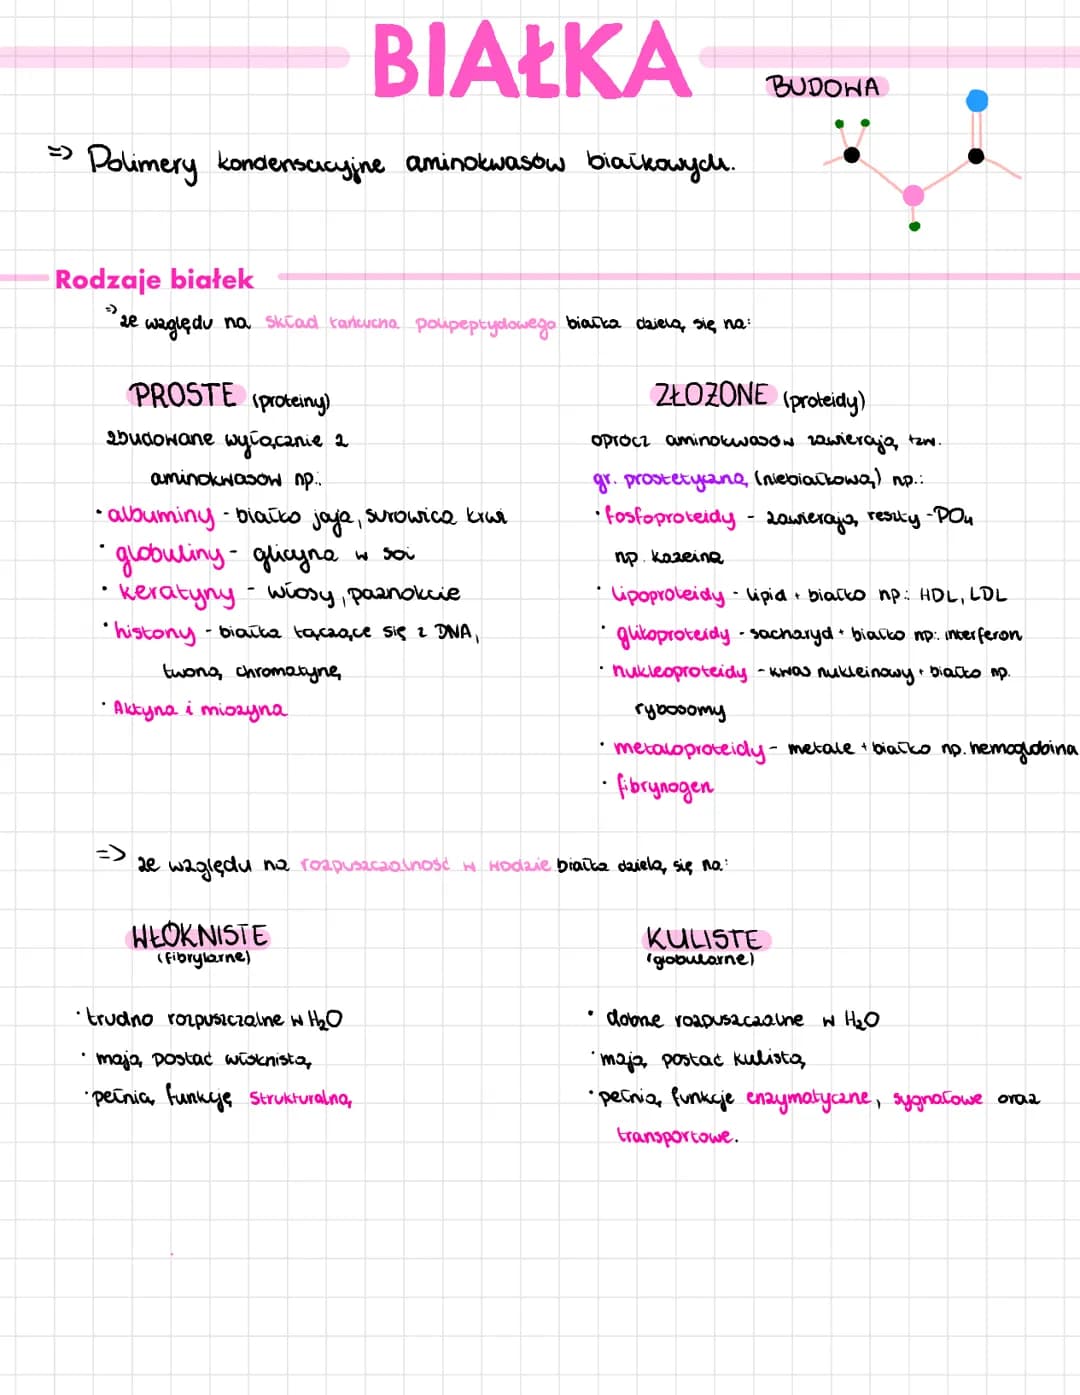 BIAŁKA
BUDOWA
=> Polimery kondensacyjne aminokwasów białkowych.
Rodzaje białek
=> ze względu na skład łańcucha polipeptydowego białka dzielą się na:
PROSTE (proteiny)
zbudowane wyłącznie z
aminokwasów np.:
• albuminy - białko jaja, surowica krwi
• globuliny - glicyna w soi
• keratyny - włosy, paznokcie
• histony - białka łączące się z DNA,
tworzą chromatynę
• Aktyna i miozyna
ZŁOŻONE (proteidy)
oprócz aminokwasów zawierają tzw.
gr. prostetyczną (niebiałkową) np.:
• fosfoproteidy - zawierają reszty -PO4
np. kazeina
• lipoproteidy - lipid + białko np.: HDL, LDL
• glikoproteidy - sacharyd + białko np.: interferon
• nukleoproteidy - kwas nukleinowy + białko np.
rybosomy
• metaloproteidy - metale + białko np. hemoglobina
• fibrynogen
=> ze względu na rozpuszczalność w wodzie białka dzielą się na:
WŁÓKNISTE
(fibrylarne)
• trudno rozpuszczalne w H₂O
• mają postać włóknistą
• pełnią funkcję strukturalną
KULISTE
(globularne)
• dobrze rozpuszczalne w H₂O
• mają postać kulistą
• pełnią funkcje enzymatyczne, sygnałowe oraz
transportowe.